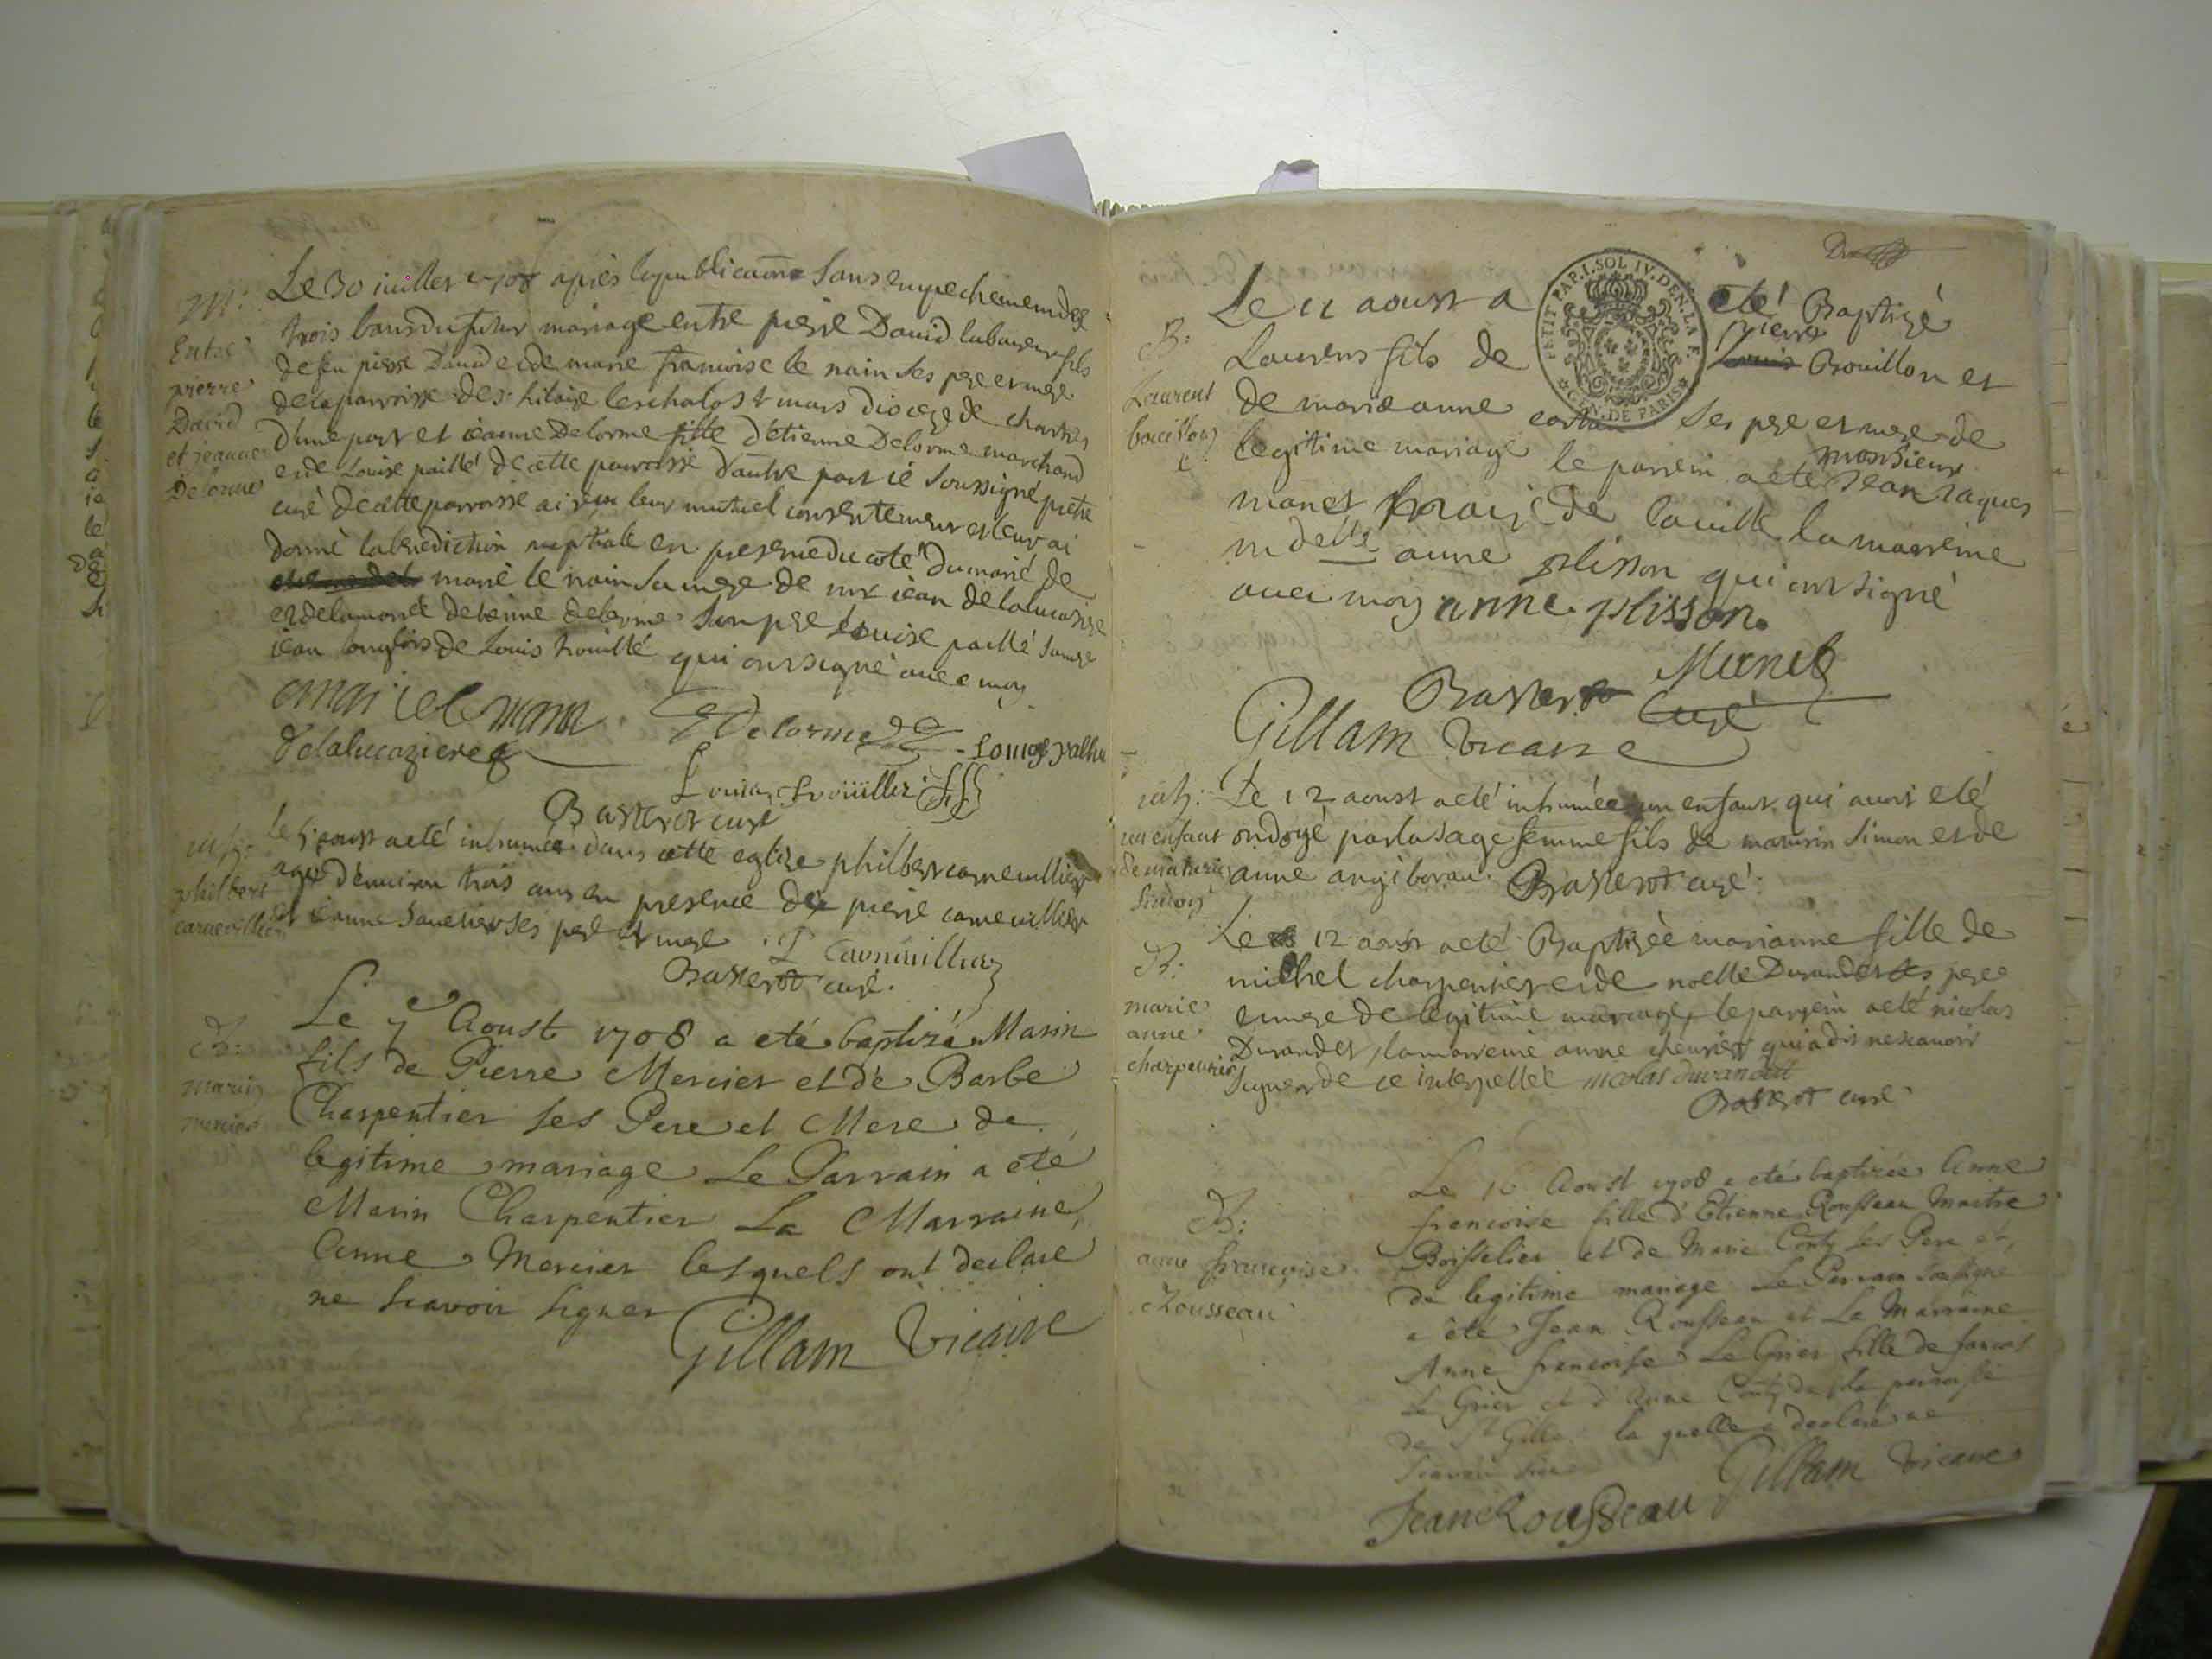 M:
Entre
pierre
David
et jeanne
Delorme
Le 30 iuillet 1708 après la publication sans empechement des
trois bans du futur mariage entre pierre David laboureur fils
de feu pierre David et de marie francoise le nain ses pere et mere
de la parroisse de st hilaire les chalost mars dioceze de chartres
d'une part et ieanne Delorme fille d'etienne Delorme marchand
et de Louise paillé de cette parroisse d'autre part ie soussigné pretre
curé de cette parroisse ai receu leur mutuel consentement et leur ai
donné la benediction nuptiale en presence du coté du marié de
marie le nain sa mere de mr iean delalucaziere
et de la mariée detienne delorme son pere Louise paillé sa mere
iean langlois de Louis trouillé qui ont signé avec moy
delalucaziere
E Delorme
Louis trouillé
Basterot curé
inh:
philbert
carnevillier
le aoust a eté inhumé dans cette eglise philbert carnevillier
agé d'environ trois ans en presence de pierre carnevillier
et ieanne ses pere et mere P Carnevillier
Basterot curé.
B:
marin
mercier
Le 7e Aoust 1708 a eté baptizé Marin
fils de Pierre Mercier et de Barbe
Charpentier ses Pere et Mere de
legitime mariage Le Parrain a eté
Marin Charpentier La Marraine
Anne Mercier lesquels ont declaré
ne scavoir signer
Gillam Vicaire
PETIT PAP. I. SOL IV. DEN. LA F.
GEN. DE PARIS
B:
Laurent
bouillon
Le 11 aoust a eté Baptizé
Laurens fils de pierre Bouillon et
de marie anne ses pere et mere de
legitime mariage le parrein a eté monsieur Jean Jaques
manet de la ville la marreine
mdelle anne plisson qui ont signé
avec moy anne plisson
Manet
Basterot Curé
Gillam Vicaire
inh:
un enfant
de maturin
simon
Le 12 aoust a eté inhumée un enfant qui avoit eté
ondoyé par la sage femme fils de maturin simon et de
anne angiboran. Basterot curé
B:
marie
anne
charpentier
Le 12 aoust a eté Baptizée marianne fille de
michel charpentier et de noelle Durandet ses pere
et mere de legitime mariage, le parrein a eté nicolas
Durandet, la marreine anne qui a dit ne scavoir
signer de ce interpellée nicolas durandet
Basterot curé
B:
anne francoise
Rousseau
Le 16 Aoust 1708 a eté baptizée Anne
francoise fille d'Etienne Rousseau Maitre
Boisselier et de Marie Conty ses Pere et
de legitime mariage Le Parrain soussigné
a eté Jean Rousseau et La Marraine
Anne francoise Le Grier fille de francois
Le Grier et d'Anne Conty de la paroisse
de St Gille. la quelle a declaré ne
scavoir signer
Gillam Vicaire
Jean Rousseau